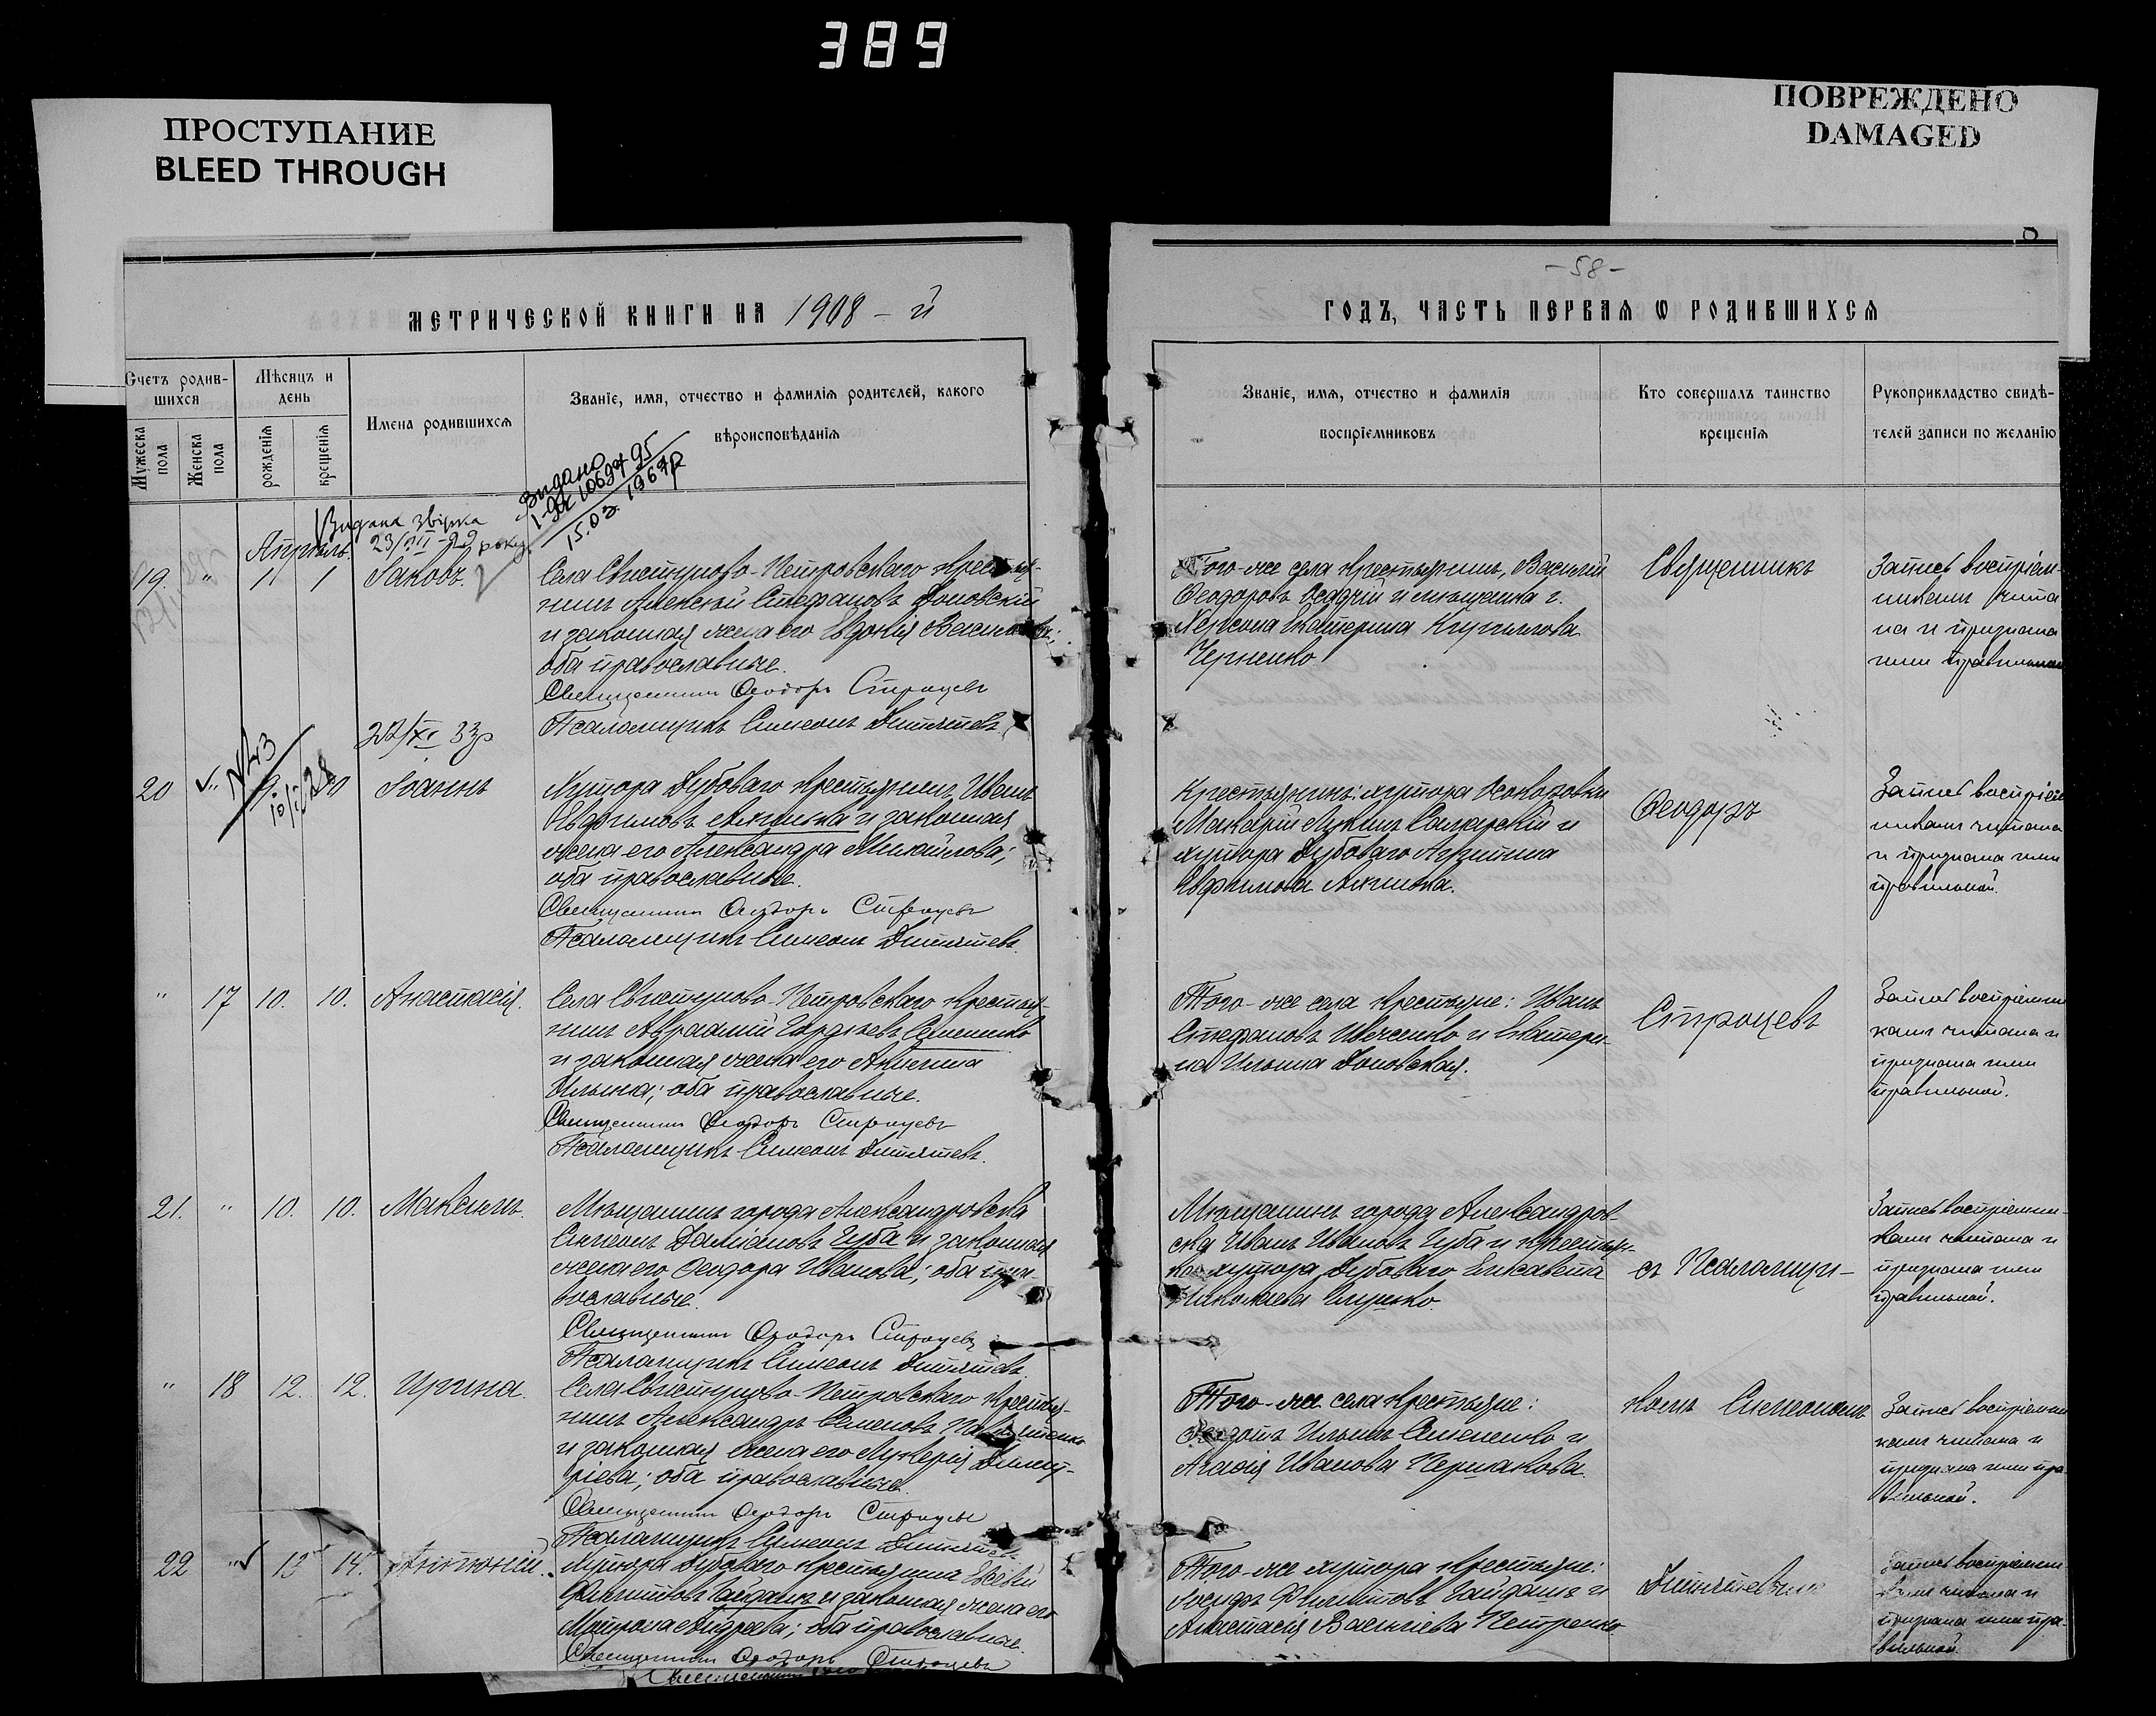 389
ПРОСТУПАНИЕ
BLEED THROUGH
ПОВРЕЖДЕНО
DAMAGED
МЕТРИЧЕСКОЙ КНИГИ НА 1908 - й
-58-
ГОДЪ, ЧАСТЬ ПЕРВАЯ Ѡ РОДИВШИХСЯ
Счетъ родившихся
Мужеска пола
Женска пола
Мѣсяцъ и день
рожденія
крещенія
Имена родившихся
Званіе, имя, отчество и фамилія родителей, какого
вѣроисповѣданія
Званіе, имя, отчество и фамилія
воспріемниковъ
Кто совершалъ таинство
крещенія
Рукоприкладство свидѣ-
телей записи по желанію
Видано
15.03. 1967р
Видана звірка
23/VII-29 року
Апрѣль
19. " 1 1 Іаковъ.
Села Свистуново-Петровскаго крестья-
нинъ Алексѣй Стефановъ Доновскій
и законная жена его Евдокія
оба православные.
Священникъ Ѳеодоръ Строцевъ
Псаломщикъ Симеонъ Дитятевъ.
Того-же села крестьянинъ, Василій
Ѳеодоровъ Осадчій и мѣщанка г.
Херсона Екатерина Кириллова
Черненко
Священникъ
Запись воспріем-
никами чита
на и признана
ими правильной
27/XI 33р
№43
20 " 9 10 Іоаннъ
Хутора Дубоваго крестьянинъ Иванъ
Евфимовъ и законная
жена его Александра Михайлова;
оба православные.
Священникъ Ѳеодоръ Строцевъ
Псаломщикъ Симеонъ Дитятевъ.
Крестьянинъ: хутора
Макарій Лукинъ и
хутора Дубоваго
Евфимова
Ѳеодоръ
Запись воспріем
никами читана
и признана ими
правильной.
" 17 10. 10. Анастасія.
Села Свистуново-Петровскаго крестья-
нинъ Авраамій Гордѣевъ Семененко
и законная жена его Акилина
Ильина; оба православные.
Священникъ Ѳеодоръ Строцевъ
Псаломщикъ Симеонъ Дитятевъ.
Того-же села крестьяне: Иванъ
Стефановъ Ивченко и Екатери-
на Ильина Доновская.
Строцевъ
Запись воспріемни
ками читана и
признана ими
правильной.
21. " 10. 10. Максимъ.
Мѣщанинъ города Александровска
Симеонъ Даміановъ Губа и законная
жена его Ѳеодора Иванова; оба пра-
вославные.
Священникъ Ѳеодоръ Строцевъ
Псаломщикъ Симеонъ Дитятевъ.
Мѣщанинъ города Александров-
ска Иванъ Ивановъ Губа и крестьян-
ка хутора Дубоваго Елисавета
Николаева
съ Псаломщи-
Запись воспріемни-
ками читана и
признана ими
правильной.
" 18 12. 12. Ирина.
Села Свистуново-Петровскаго крестья-
нинъ Александръ Семеновъ
и законная жена его Лукерія Димит-
ріева; оба православные.
Священникъ Ѳеодоръ Строцевъ
Псаломщикъ Симеонъ Дитятевъ
Того-же села крестьяне:
Ильинъ Семененко и
Агафія Иванова Пермакова.
комъ Симеономъ
Запись воспріемни
ками читана и
признана ими пра-
вильной.
22 " 13 14. Антоній.
Хутора Дубоваго крестьянинъ Евсевій
Филиповъ Гайдашъ и законная жена его
Матрона Андреева; оба православные.
Священникъ Ѳеодоръ Строцевъ
Того-же хутора крестьяне:
Іосифъ Филиповъ Гайдашъ и
Анастасія Васильева Петренко.
Дитятевымъ
Запись воспріемни
ками читана и
признана ими пра-
вильной.